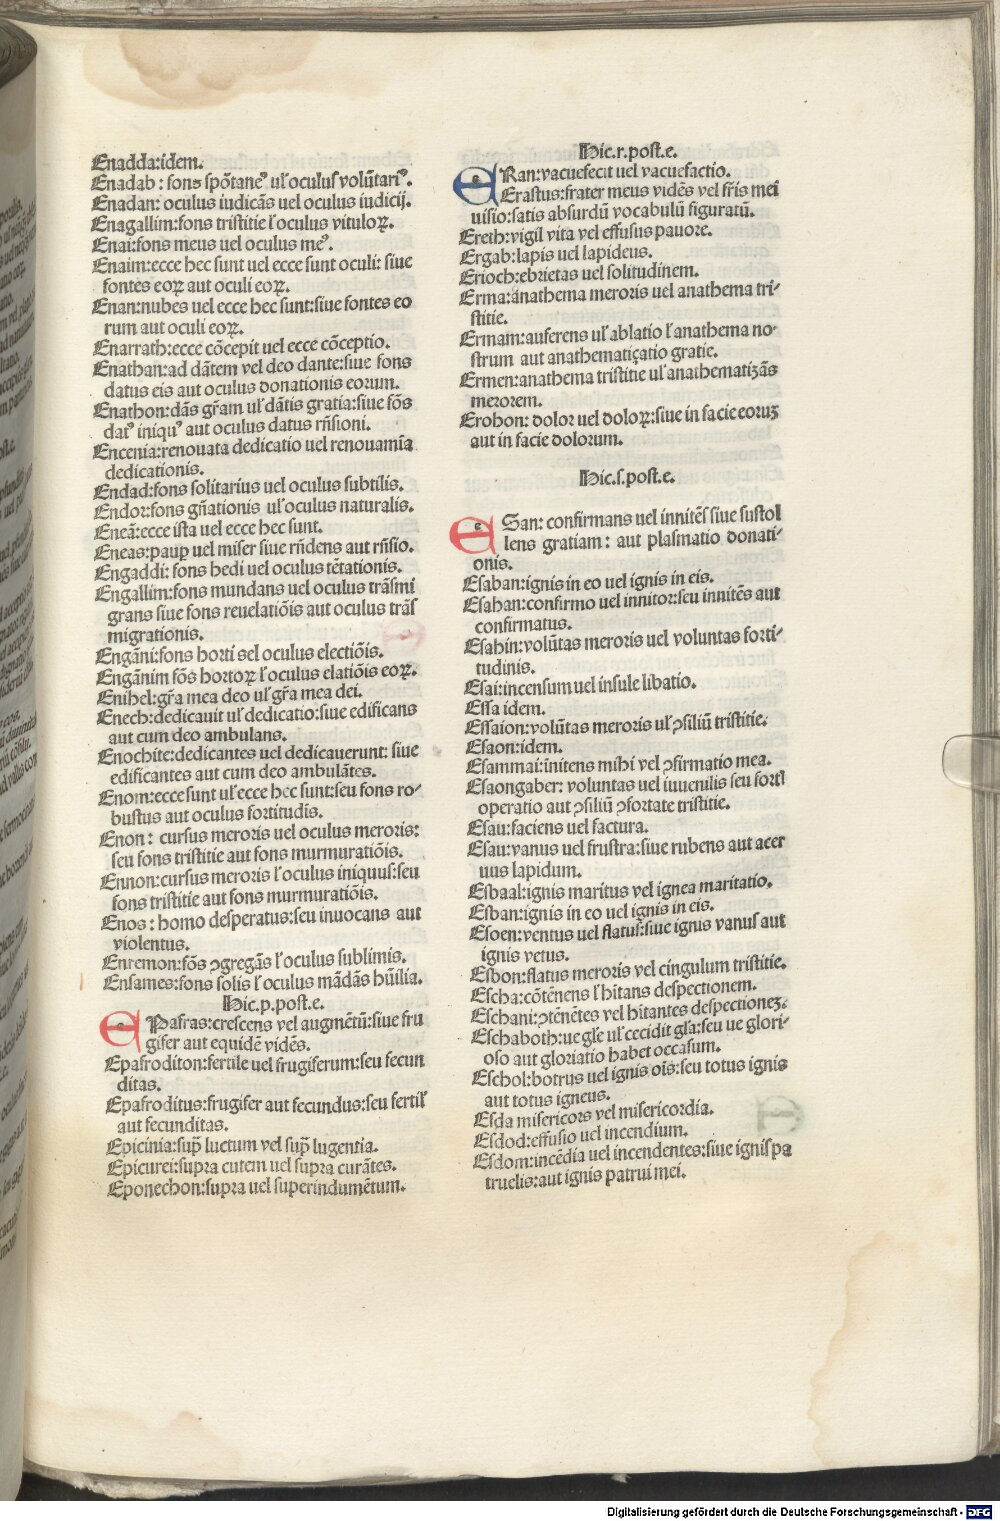 Enadda:idem.
Enadab: fons spōtaneꝰ ul' oculus volūtariꝰ.
Enadan: oculus iudicās uel oculus iudicij.
Enagallim:fons tristitie l' oculus vituloꝝ.
Enai:fons meus uel oculus meꝰ.
Enaim:ecce hec sunt uel ecce sunt oculi: siue
fontes eoꝝ aut oculi eoꝝ.
Enan:nubes uel ecce hec sunt:siue fontes eo
rum aut oculi eoꝝ.
Enarrath:ecce cōcepit uel ecce cōceptio.
Enathan:ad dātem vel deo dante:siue fons
datus eis aut oculus donationis eorum.
Enathon:dās gr̄am ul' dātis gratia:siue fōs
datꝰ iniquꝰ aut oculus datus rn̄sioni.
Encenia:renouata dedicatio uel renouamīa
dedicationis.
Endad:fons solitarius uel oculus subtilis.
Endor:fons gn̄ationis ul' oculus naturalis.
Eneā:ecce ista uel ecce hec sunt.
Eneas:paup̲ uel miser siue rn̄dens aut rn̄sio.
Engaddi: fons hedi uel oculus tētationis.
Engallim:fons mundans uel oculus trāsmi
grans siue fons reuelatiōis aut oculus trās
migrationis.
Engāni:fons horti sel oculus electiōis.
Engānim fōs hortoꝝ l' oculus elatiōis eoꝝ.
Enihel:gr̄a mea deo ul' gr̄a mea dei.
Enech:dedicauit ul' dedicatio:siue edificans
aut cum deo ambulans.
Enochite:dedicantes uel dedicauerunt: siue
edificantes aut cum deo ambulātes.
Enom:ecce sunt ul' ecce hec sunt:seu fons ro-
bustus aut oculus fortitudis.
Enon: cursus meroris uel oculus meroris:
seu fons tristitie aut fons murmuratiōis.
Ennon:cursus meroris l' oculus iniquus:seu
fons tristitie aut fons murmuratiōis.
Enos: homo desperatus:seu inuocans aut
violentus.
Enremon:fōs ꝯgregās l' oculus sublimis.
Ensames:fons solis l' oculus mādās hūilia.
Hic.p.post.e.
EPafras:crescens vel augmētū:siue fru
gifer aut equidē vidēs.
Epafroditon:fertile uel frugiferum:seu fecun
ditas.
Epafroditus:frugifer aut fecundus:seu fertil'
aut fecunditas.
Epicinia:sup̄ luctum vel sup̄ lugentia.
Epicurei:supra cutem uel supra curātes.
Eponechon:supra uel superindumētum.
Hic.r.post.e.
ERan:vacuefecit uel vacuefactio.
Erastus:frater meus vidēs vel fr̄is mei
uisio:satis absurdū vocabulū figuratū.
Ereth:vigil vita vel effusus pauore.
Ergab:lapis uel lapideus.
Erioch:ebrietas uel solitudinem.
Erma:anathema meroris uel anathema tri-
stitie.
Ermam:auferens ul' ablatio l' anathema no-
strum aut anathematiçatio gratie.
Ermen:anathema tristitie ul' anathematizās
merorem.
Erohon: dolor uel doloꝝ:siue in facie eoruꝫ
aut in facie dolorum.
Hic.s.post.e.
ESan: confirmans uel innitēs siue sustol
lens gratiam: aut plasmatio donati-
onis.
Esaban:ignis in eo uel ignis in eis.
Esahan:confirmo uel innitor:seu innitēs aut
confirmatus.
Esahin:volūtas meroris uel voluntas forti-
tudinis.
Esai:incensum uel insule libatio.
Essa idem.
Essaion:volūtas meroris ul' ꝯsiliū tristitie.
Esaon:idem.
Esammai:initens mihi vel ꝯfirmatio mea.
Esaongaber: voluntas uel iuuenilis seu fortl'
operatio aut ꝯsiliū ꝯfortate tristitie.
Esau:faciens uel factura.
Esau:vanus uel frustra:siue rubens aut acer
uus lapidum.
Esbaal:ignis maritus vel ignea maritatio.
Esban:ignis in eo uel ignis in eis.
Esoen:ventus uel flatus:siue ignis vanus aut
ignis vetus.
Esbon:flatus meroris vel cingulum tristitie.
Escha:cōtēnens l' hītans despectionem.
Eschani:ꝯtēnētes vel hītantes despectioneꝫ.
Eschaboth:ue gl'e ul' cecidit gl'a:seu ue glori-
oso aut gloriatio habet occasum.
Eschol:botrus uel ignis oīs:seu totus ignis
aut totus igneus.
Esda misericors vel misericordia.
Esdod:effusio uel incendium.
Esdom:incēdia uel incendentes:siue ignis pa
truelis:aut ignis patrui mei.
Digitalisierung gefördert durch die Deutsche Forschungsgemeinschaft - DFG